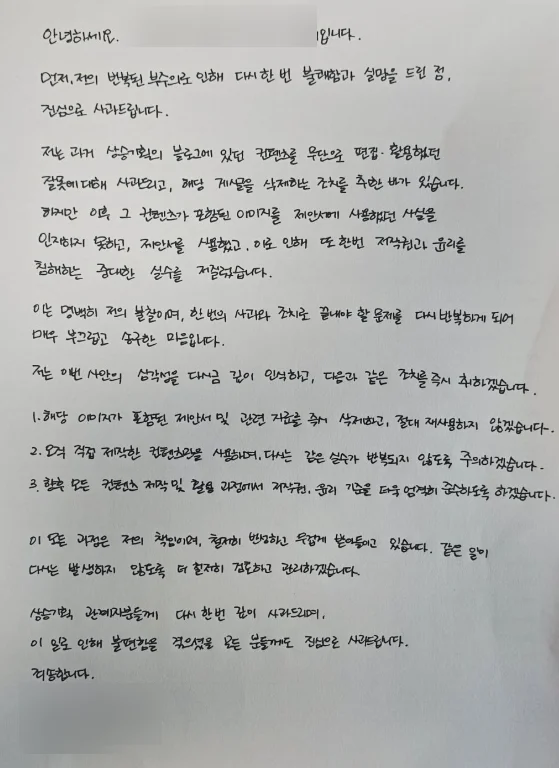 안녕하세요. 입니다.
먼저, 저의 반복된 부주의로 인해 다시 한 번 불쾌함과 실망을 드린 점,
진심으로 사과드립니다.
저는 과거 상승기획의 블로그에 있던 컨텐츠를 무단으로 편집·활용했던
잘못에 대해 사과드리고, 해당 게시물을 삭제하는 조치를 취한 바가 있습니다.
하지만 이후 그 컨텐츠가 포함된 이미지를 제안서에 사용했던 사실을
인지하지 못하고, 제안서를 사용했고, 이로 인해 또 한번 저작권과 윤리를
침해하는 중대한 실수를 저질렀습니다.
이는 명백히 저의 불찰이며, 한 번의 사과와 조치로 끝내야 할 문제를 다시 반복하게 되어
매우 부끄럽고 송구한 마음입니다.
저는 이번 사안의 심각성을 다시금 깊이 인식하고, 다음과 같은 조치를 즉시 취하겠습니다.
1. 해당 이미지가 포함된 제안서 및 관련 자료를 즉시 삭제하고, 절대 재사용하지 않겠습니다.
2. 오직 직접 제작한 컨텐츠만을 사용하며, 다시는 같은 실수가 반복되지 않도록 주의하겠습니다.
3. 향후 모든 컨텐츠 제작 및 활용 과정에서 저작권, 윤리 기준을 더욱 엄격히 준수하도록 하겠습니다.
이 모든 과정은 저의 책임이며, 철저히 반성하고 무겁게 받아들이고 있습니다. 같은 일이
다시는 발생하지 않도록 더 철저히 검토하고 관리하겠습니다.
상승기획 관계자분들께 다시 한번 깊이 사과드리며,
이 일로 인해 불편함을 겪으셨을 모든 분들께도 진심으로 사과드립니다.
죄송합니다.